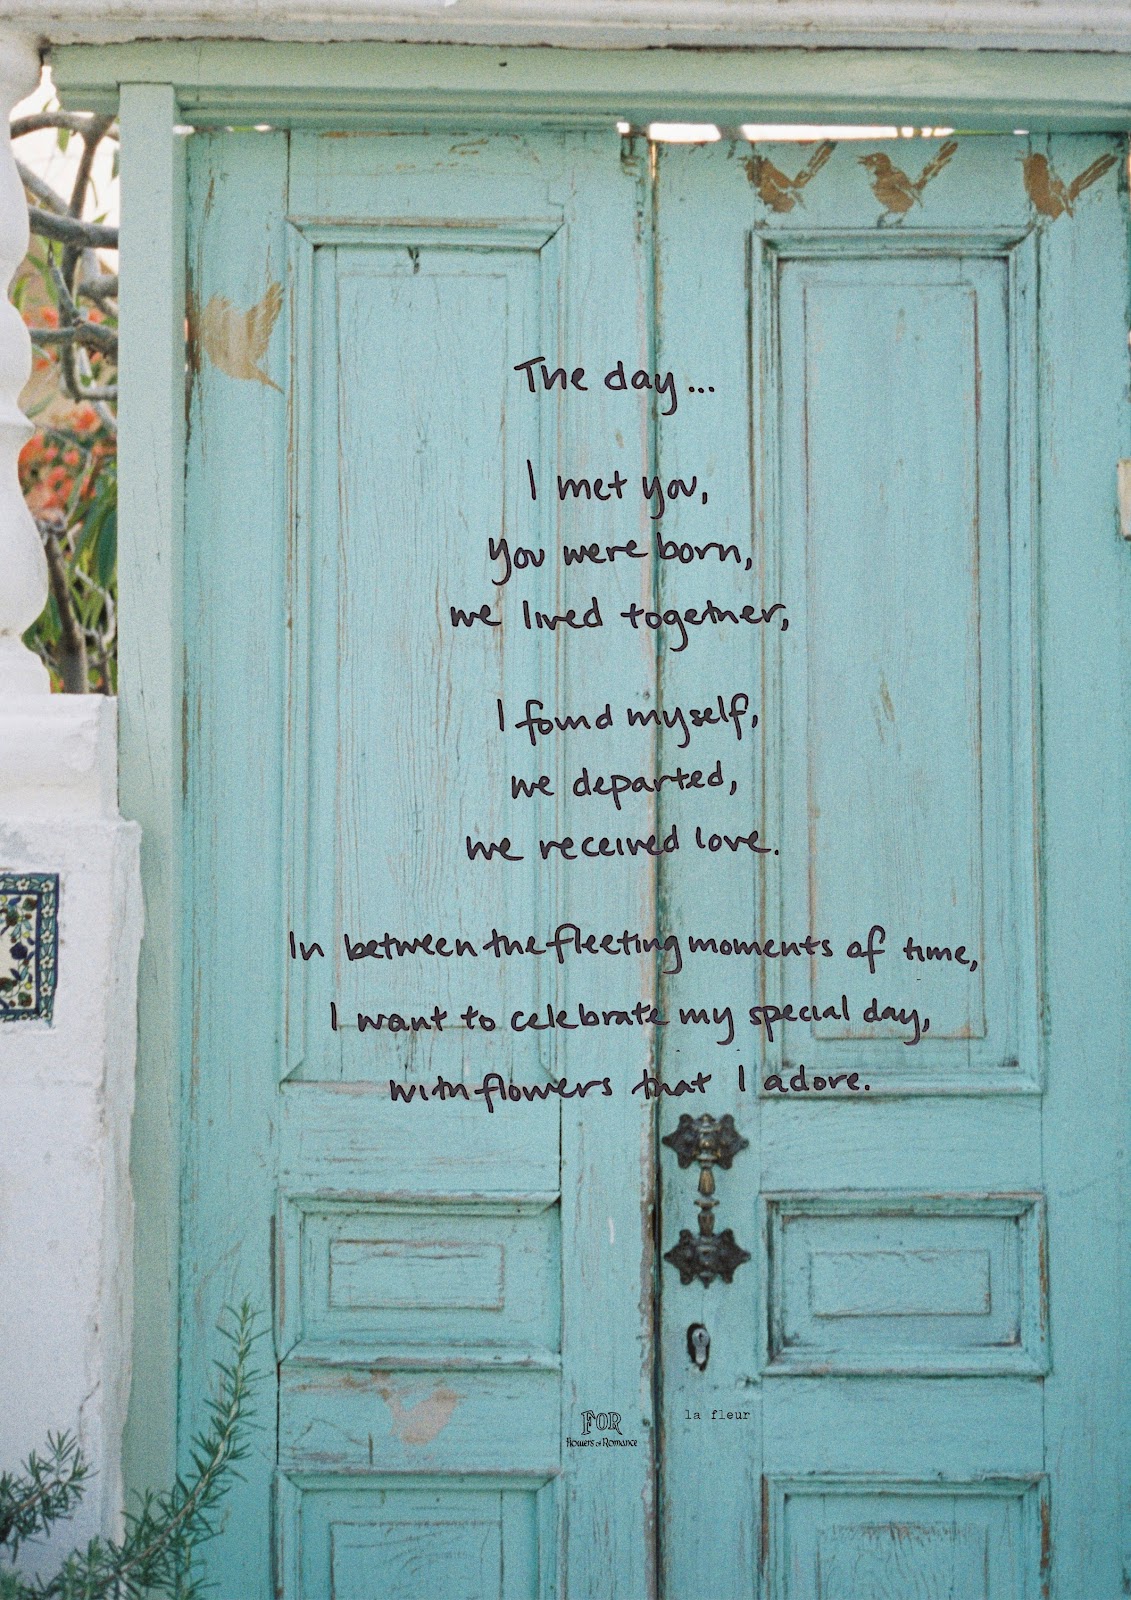 The day...
I met you,
you were born,
we lived together,
I found myself,
we departed,
we received love.
In between the fleeting moments of time,
I want to celebrate my special day,
with flowers that I adore.
FOR
Flowers of Romance
la fleur